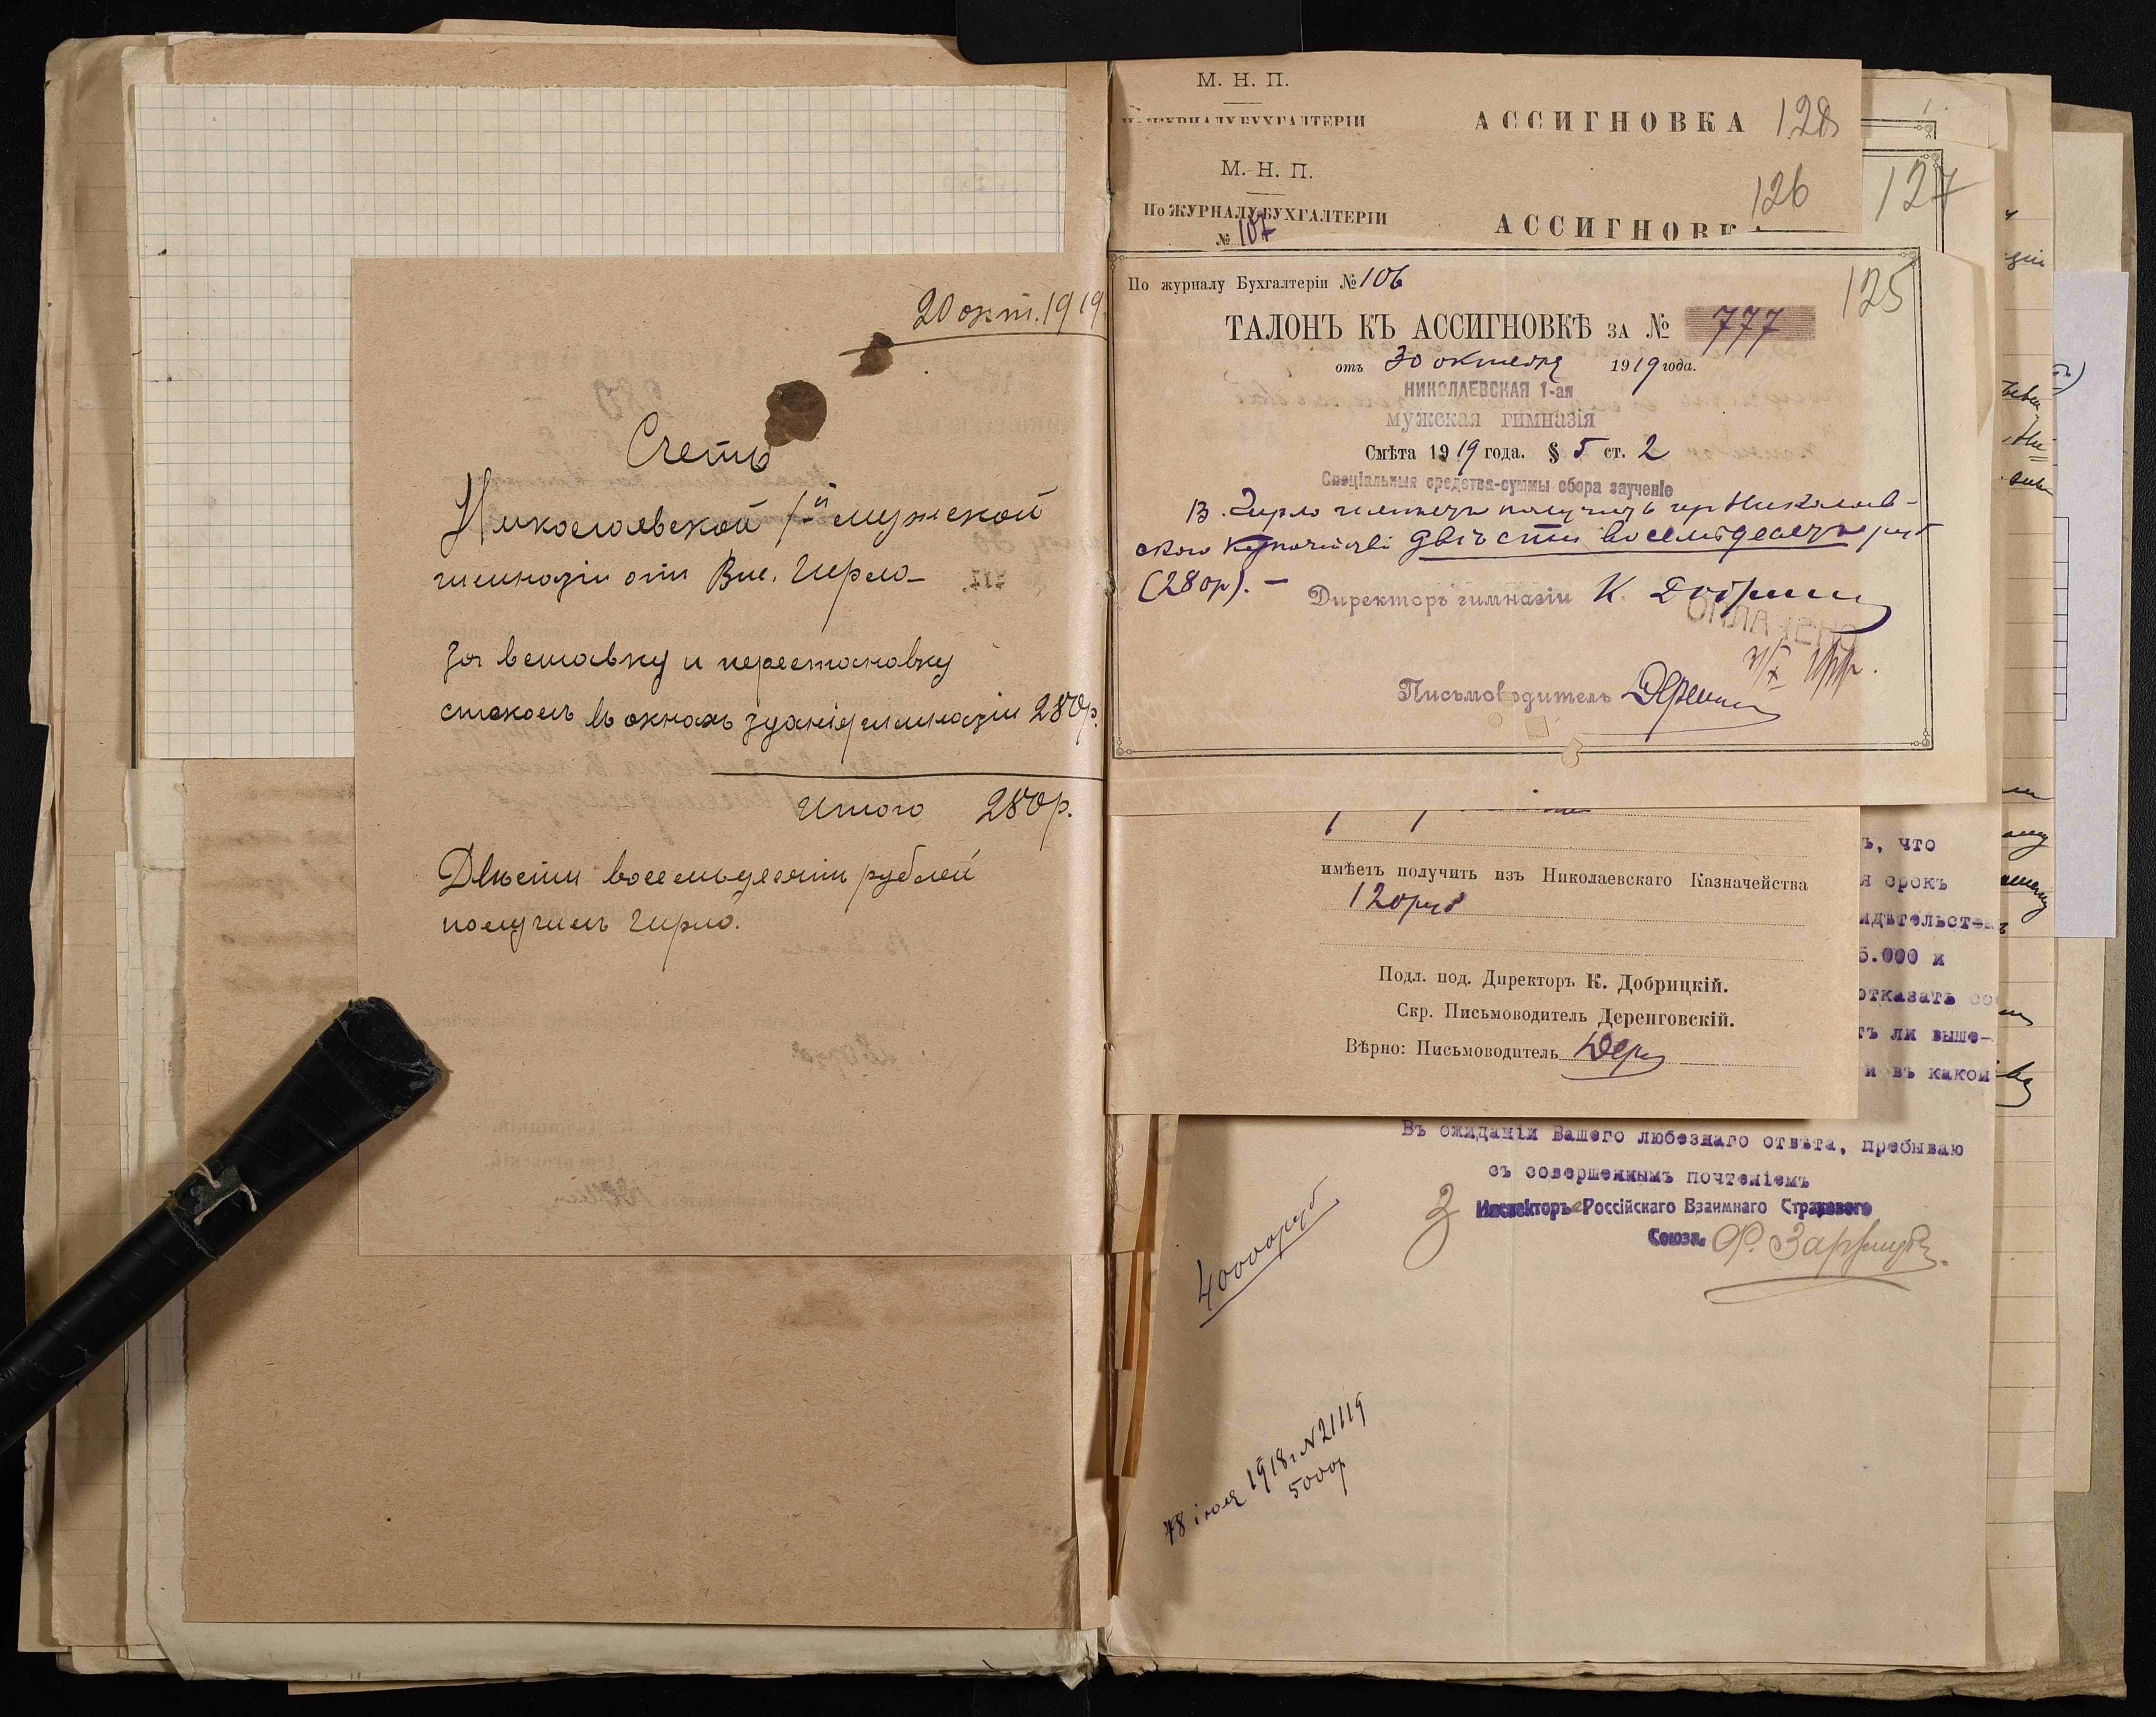 20 окт. 1919
Счетъ
Николаевской 1-й мужской
гимназіи отъ Вил. Гирло
за вставку и перестановку
стеколъ въ окнахъ зданія гимназіи 280 р.
Итого 280 р.
Двѣсти восемьдесятъ рублей
получилъ Гирло.
М. Н. П.
ЖУРНАЛУ БУХГАЛТЕРІИ
АССИГНОВКА 128
М. Н. П.
По ЖУРНАЛУ БУХГАЛТЕРІИ
№ 107
АССИГНОВК
126
127
По журналу Бухгалтеріи № 106
125
ТАЛОНЪ КЪ АССИГНОВКѢ ЗА № 777
отъ 30 октября 1919 года.
НИКОЛАЕВСКАЯ 1-ая
мужская гимназія
Смѣта 1919 года. § 5 ст. 2
Спеціальныя средства-суммы сбора за ученіе
В. Гирло имѣетъ получить изъ Николаев-
скаго Казначейства двѣсти восемьдесятъ руб
(280р). —
Директоръ гимназіи К. Добрицкій
ОПЛАЧЕНО
Письмоводитель
имѣетъ получить изъ Николаевскаго Казначейства
120 руб
Подл. под. Директоръ К. Добрицкій.
Скр. Письмоводитель Деренговскій.
Вѣрно: Письмоводитель Дер
ъ, что
я срокъ
идѣтельств
5.000 и
отказать со
тъ ли выше-
и въ какой
Въ ожиданіи Вашего любезнаго отвѣта, пребываю
съ совершеннымъ почтеніемъ
Инспекторъ Россійскаго Взаимнаго Страхового
Союза.
40000 руб
18 іюля 1918 г. N 21119
5000 р